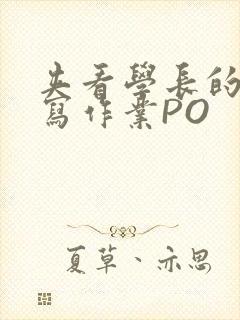 夹看學長的
寫作業PO
夏草、亦思